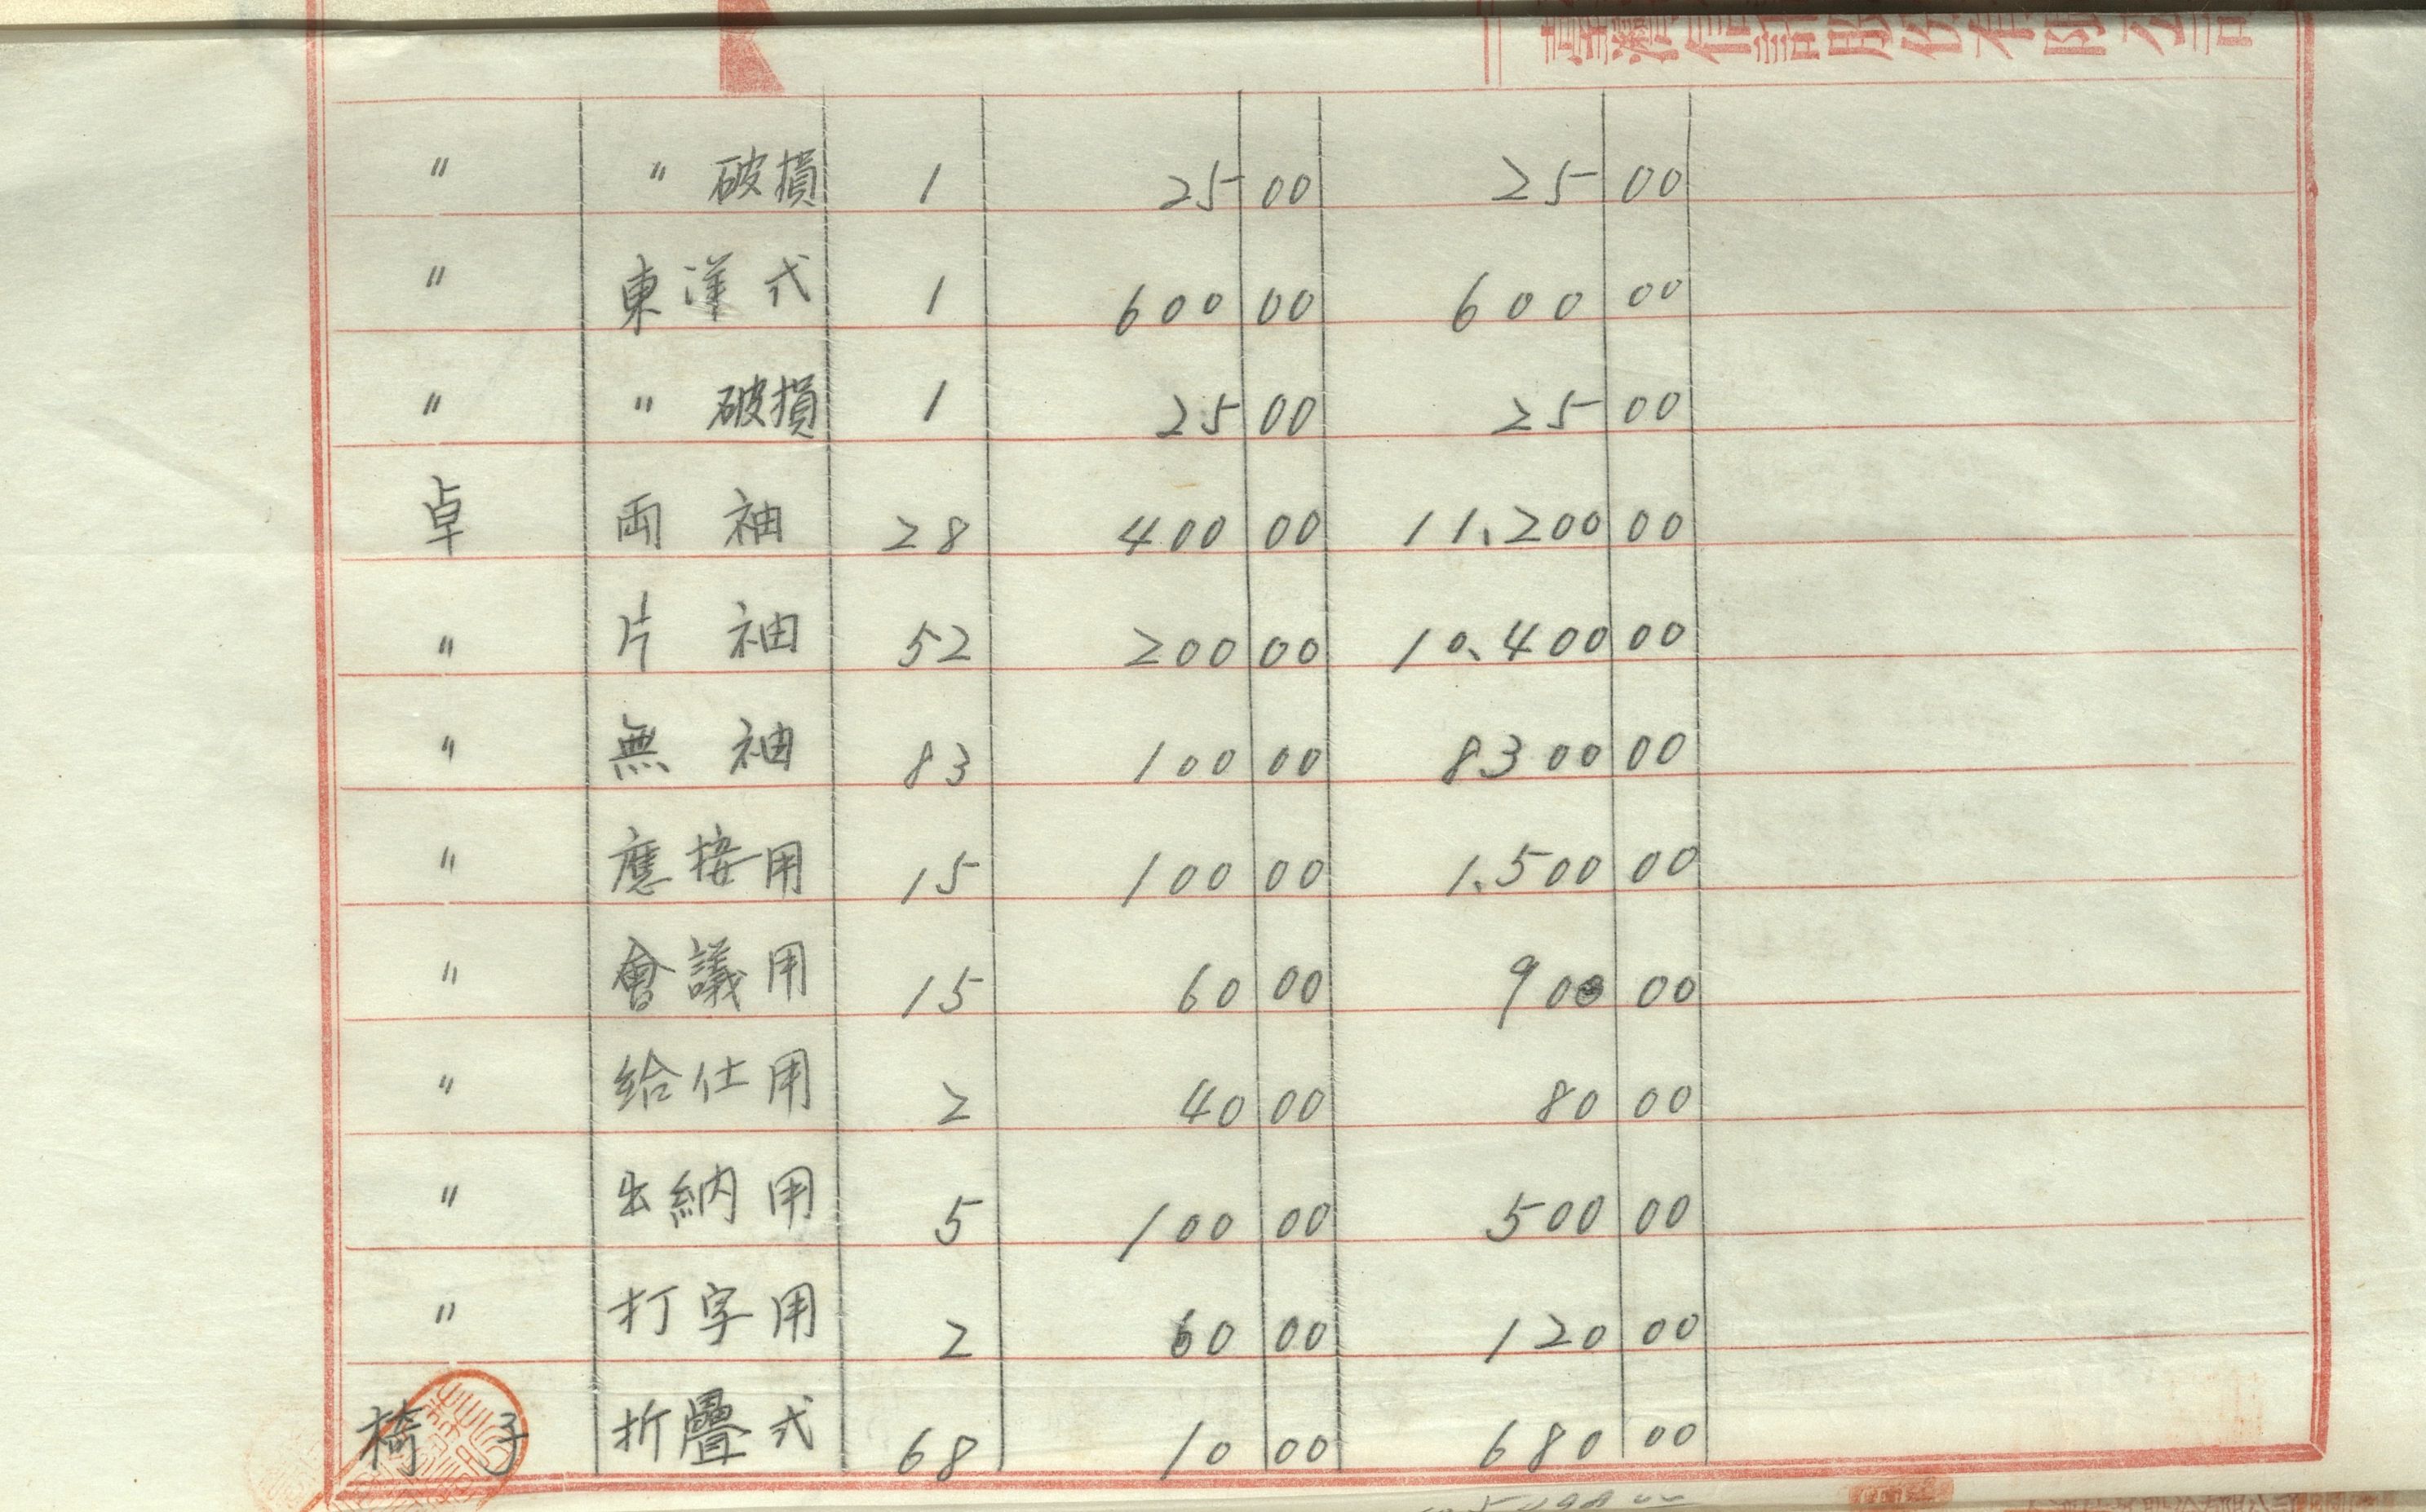 臺灣信託股份有限公司
〃 〃 破損 1 25 00 25 00
〃 東洋式 1 600 00 600 00
〃 〃 破損 1 25 00 25 00
卓 両袖 28 400 00 11.200 00
〃 片袖 52 200 00 10.400 00
〃 無袖 83 100 00 8300 00
〃 應接用 15 100 00 1.500 00
〃 會議用 15 60 00 900 00
〃 給仕用 2 40 00 80 00
〃 出納用 5 100 00 500 00
〃 打字用 2 60 00 120 00
椅子 折疊式 68 10 00 680 00